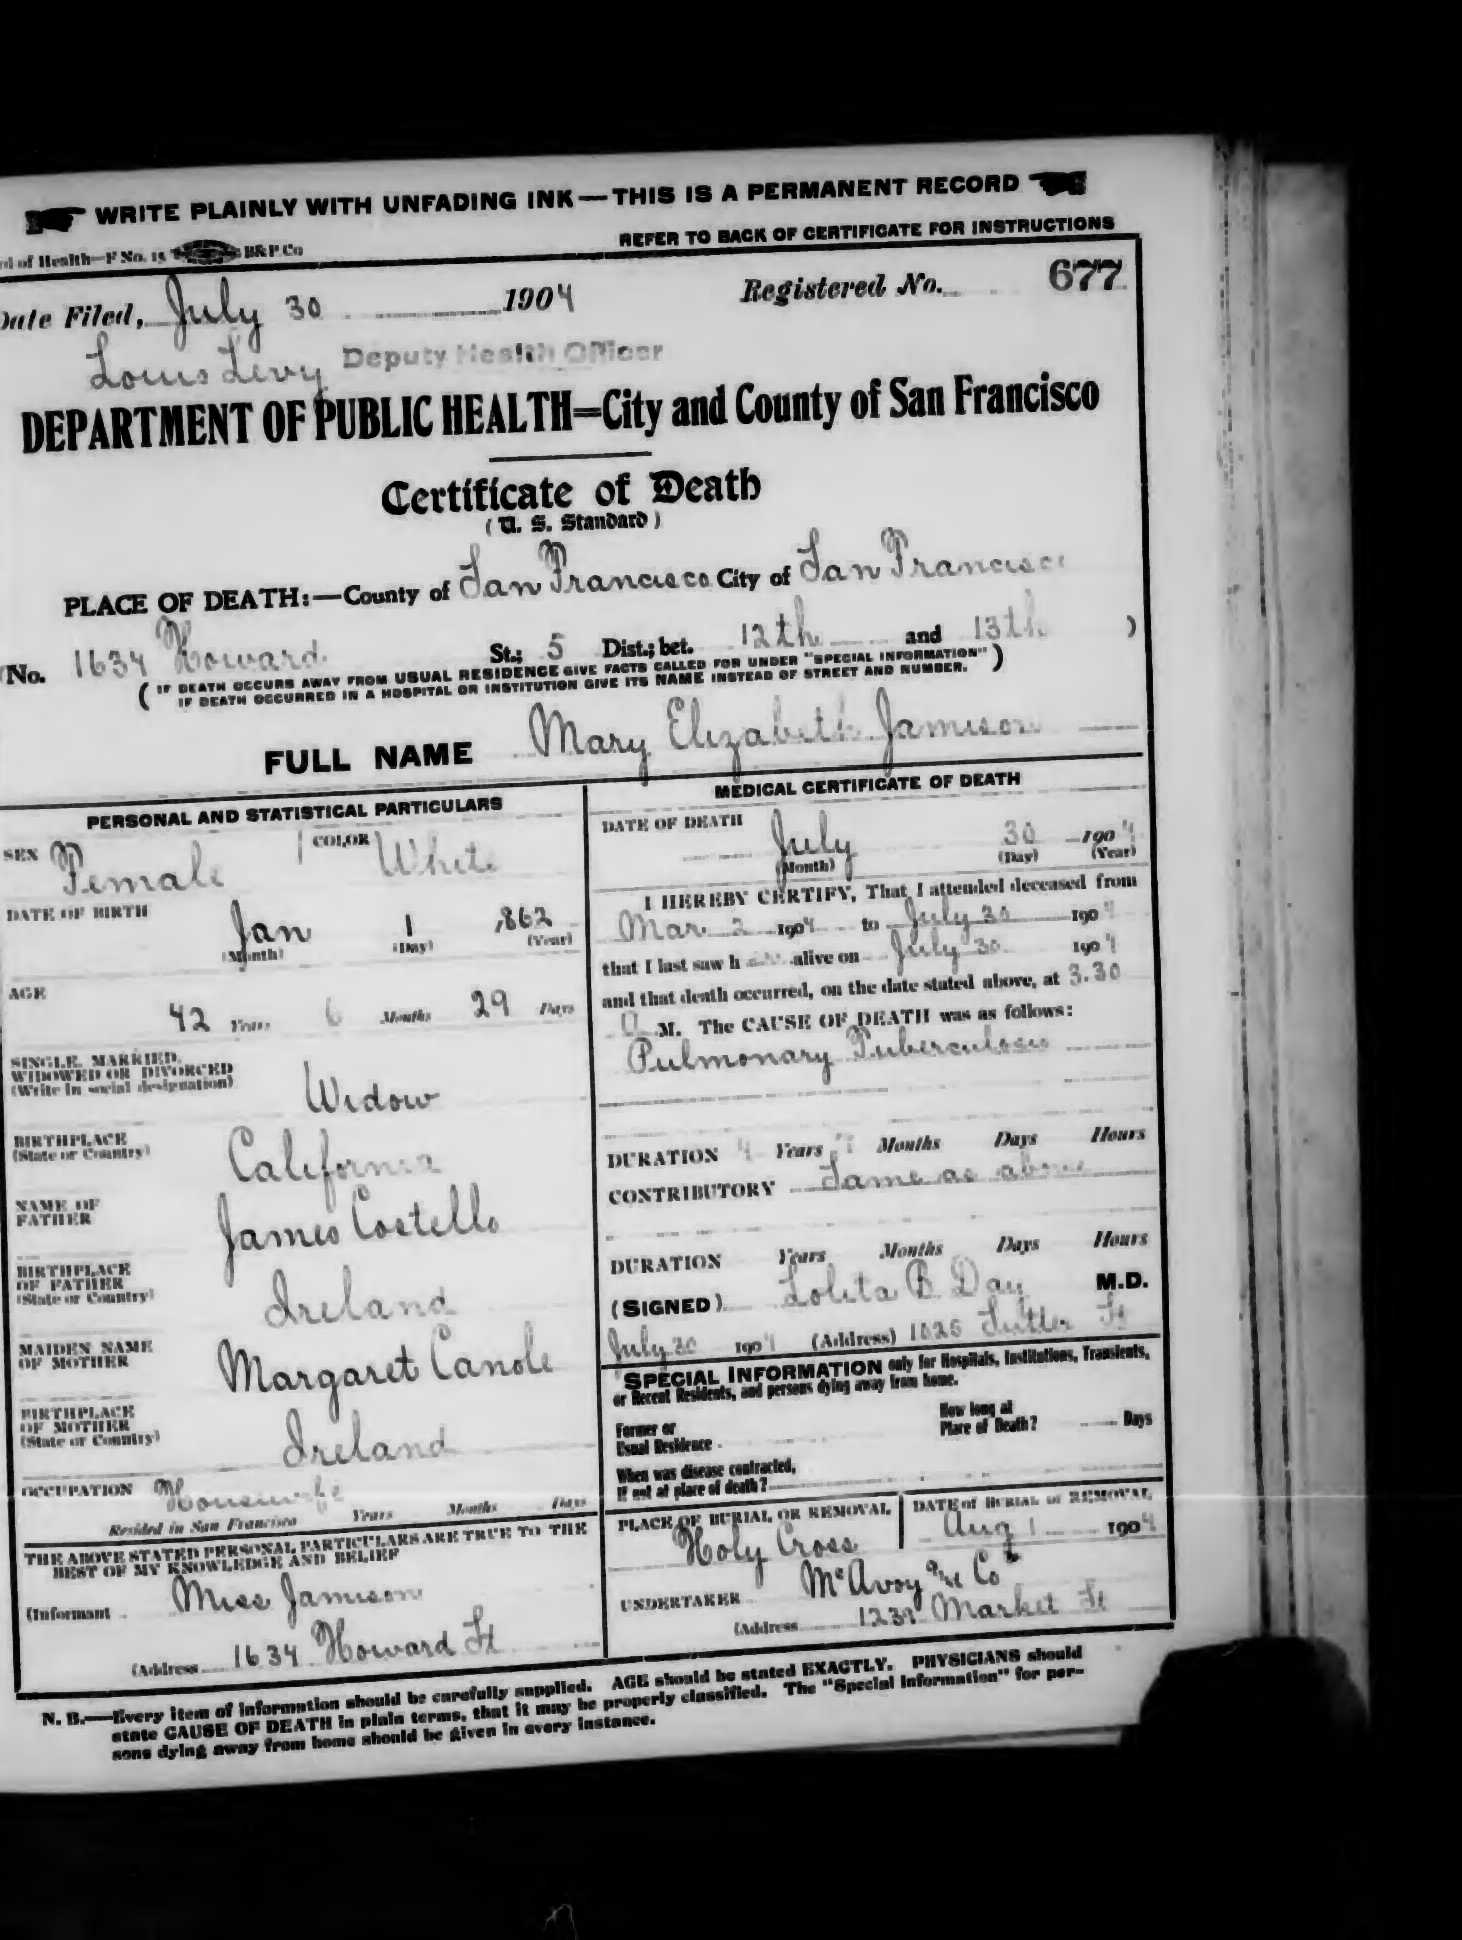 WRITE PLAINLY WITH UNFADING INK — THIS IS A PERMANENT RECORD
rd of Health—F No. 15 B&P Co
REFER TO BACK OF CERTIFICATE FOR INSTRUCTIONS
Date Filed, July 30 1904 Registered No. 677
Louis Levy Deputy Health Officer
DEPARTMENT OF PUBLIC HEALTH=City and County of San Francisco
Certificate of Death
(U. S. Standard)
PLACE OF DEATH:—County of San Francisco City of San Francisco
No. 1634 Howard St.; 5 Dist.; bet. 12th and 13th )
( IF DEATH OCCURS AWAY FROM USUAL RESIDENCE GIVE FACTS CALLED FOR UNDER "SPECIAL INFORMATION" )
IF DEATH OCCURRED IN A HOSPITAL OR INSTITUTION GIVE ITS NAME INSTEAD OF STREET AND NUMBER.
FULL NAME Mary Elizabeth Jamison
PERSONAL AND STATISTICAL PARTICULARS
SEX Female COLOR White
DATE OF BIRTH Jan 1 1862
(Month) (Day) (Year)
AGE 42 Years 6 Months 29 Days
SINGLE, MARRIED,
WIDOWED OR DIVORCED
(Write in social designation) Widow
BIRTHPLACE
(State or Country) California
NAME OF
FATHER James Costello
BIRTHPLACE
OF FATHER
(State or Country) Ireland
MAIDEN NAME
OF MOTHER Margaret Canole
BIRTHPLACE
OF MOTHER
(State or Country) Ireland
OCCUPATION Housewife
Resided in San Francisco Years Months Days
THE ABOVE STATED PERSONAL PARTICULARS ARE TRUE TO THE
BEST OF MY KNOWLEDGE AND BELIEF
(Informant Miss Jamison
(Address 1634 Howard St
MEDICAL CERTIFICATE OF DEATH
DATE OF DEATH July 30 1904
(Month) (Day) (Year)
I HEREBY CERTIFY, That I attended deceased from
Mar. 2 1904 to July 30 1904
that I last saw h alive on July 30 1904
and that death occurred, on the date stated above, at 3.30
a M. The CAUSE OF DEATH was as follows:
Pulmonary Tuberculosis
DURATION Years Months Days Hours
CONTRIBUTORY Same as above
DURATION Years Months Days Hours
(SIGNED) Lolita B. Day M.D.
July 30 1904 (Address) 1025 Sutter St
SPECIAL INFORMATION only for Hospitals, Institutions, Transients,
or Recent Residents, and persons dying away from home.
Former or
Usual Residence
How long at
Place of Death? Days
When was disease contracted,
If not at place of death?
PLACE OF BURIAL OR REMOVAL
Holy Cross
DATE of BURIAL or REMOVAL
Aug 1 1904
UNDERTAKER McAvoy & Co
(Address 1239 Market St
N. B.—Every item of information should be carefully supplied. AGE should be stated EXACTLY. PHYSICIANS should
state CAUSE OF DEATH in plain terms, that it may be properly classified. The "Special Information" for per-
sons dying away from home should be given in every instance.